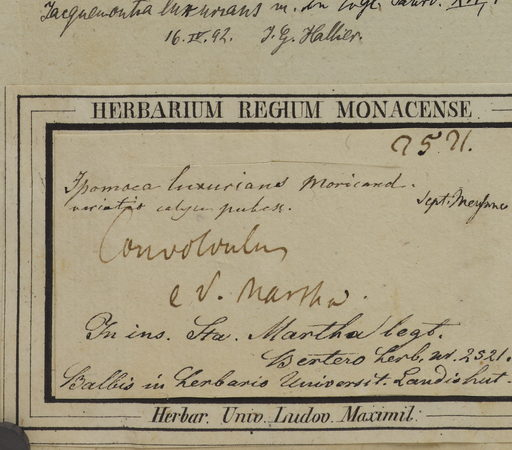 Jacquemontia luxurians m. in Engl. Jahrb. XVI,
16.IV.92. J. G. Hallier.
HERBARIUM REGIUM MONACENSE
2521.
Ipomoea luxurians Moricand.
variatio calyce pubesc. Sept: Meysner
Convolvulus
e S. Martha.
In ins. Sta. Martha legt.
Bertero herb. nr. 2521.
Balbis in herbario Universit. Landishut.
Herbar. Univ. Ludov. Maximil: